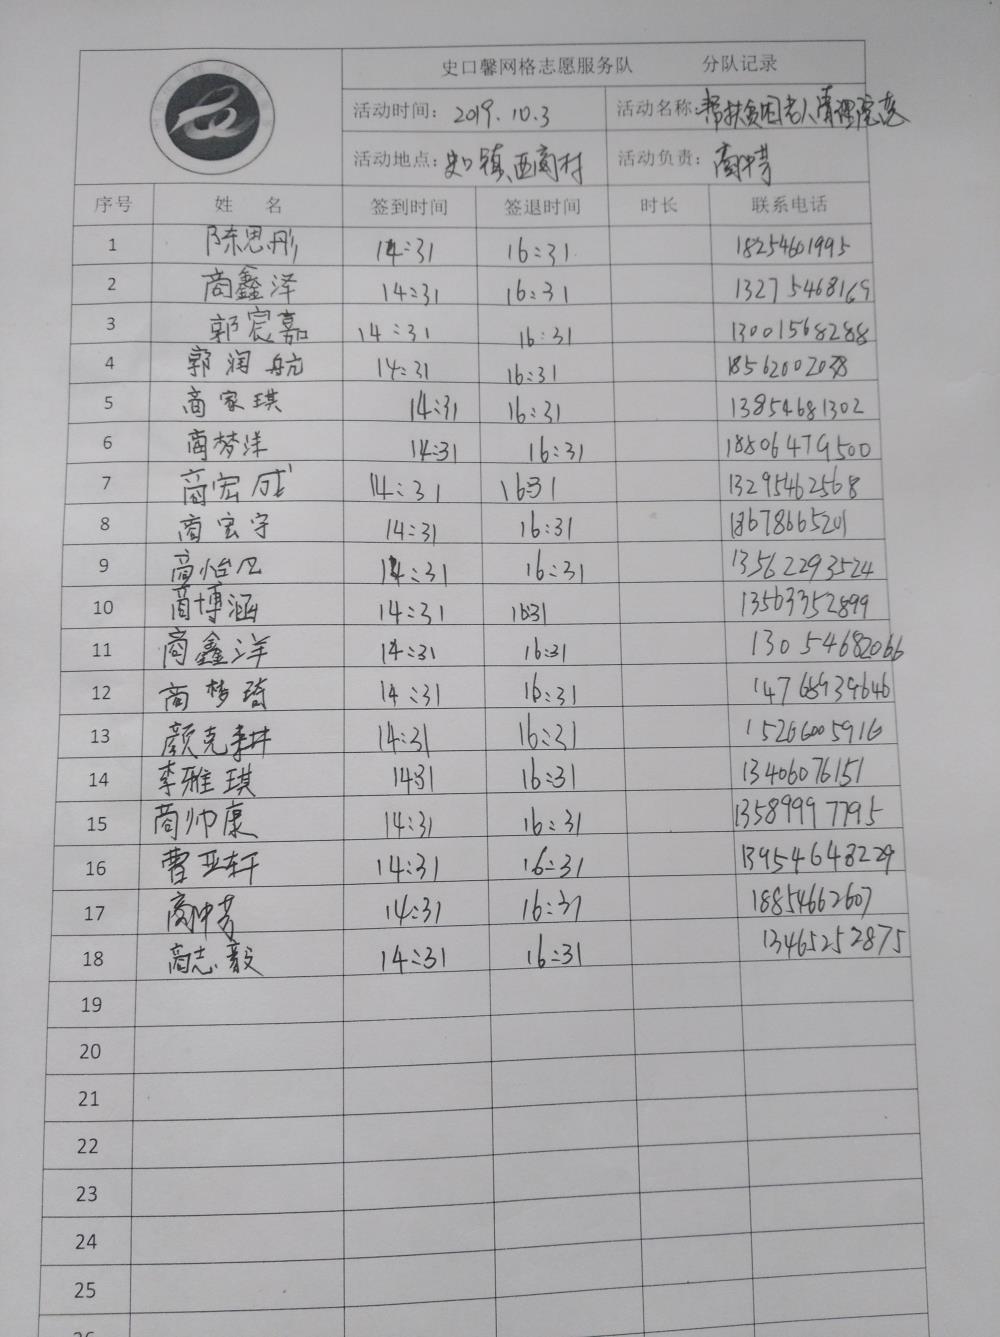 史口馨网格志愿服务队 分队记录
活动时间: 2019.10.3 活动名称: 帮扶贫困老人清理院落
活动地点: 史口镇西商村 活动负责: 商中芳
序号 姓 名 签到时间 签退时间 时长 联系电话
1 陈思彤 14:31 16:31 18254601995
2 商鑫泽 14:31 16:31 13275468169
3 郭宸嘉 14:31 16:31 13001568288
4 郭润航 14:31 16:31 18562002038
5 商家琪 14:31 16:31 13854681302
6 商梦洋 14:31 16:31 18806479500
7 商宏成 14:31 16:31 13295462568
8 商宏宇 14:31 16:31 18678665201
9 商怡 14:31 16:31 13562293524
10 商博涵 14:31 16:31 13563352899
11 商鑫洋 14:31 16:31 13054682066
12 商梦琦 14:31 16:31 14768939646
13 颜克耕 14:31 16:31 15266005916
14 李雅琪 14:31 16:31 13406076151
15 商帅康 14:31 16:31 13589997795
16 曹亚轩 14:31 16:31 13954648229
17 商中芳 14:31 16:31 18854662607
18 商志毅 14:31 16:31 13465252875
19
20
21
22
23
24
25